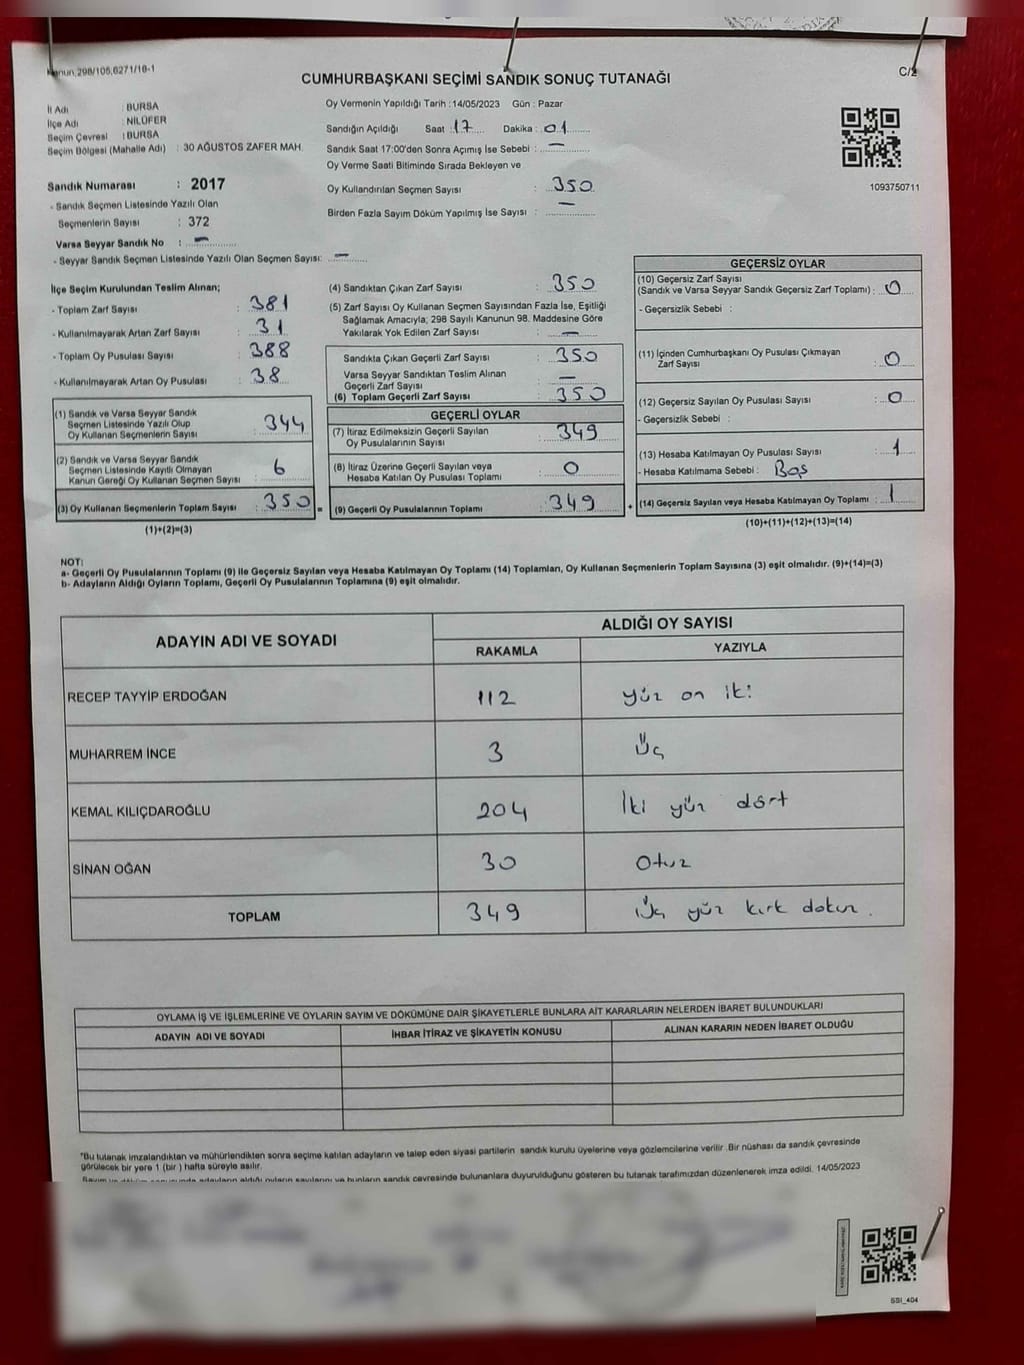 Kanun,298/105,6271/16-1
C/2
CUMHURBAŞKANI SEÇİMİ SANDIK SONUÇ TUTANAĞI
İl Adı : BURSA
İlçe Adı : NİLÜFER
Seçim Çevresi : BURSA
Seçim Bölgesi (Mahalle Adı) : 30 AĞUSTOS ZAFER MAH.
Sandık Numarası : 2017
- Sandık Seçmen Listesinde Yazılı Olan
Seçmenlerin Sayısı : 372
Varsa Seyyar Sandık No : –
- Seyyar Sandık Seçmen Listesinde Yazılı Olan Seçmen Sayısı: –
Oy Vermenin Yapıldığı Tarih : 14/05/2023 Gün : Pazar
Sandığın Açıldığı Saat : 17 Dakika : 01
Sandık Saat 17:00'den Sonra Açımış İse Sebebi : –
Oy Verme Saati Bitiminde Sırada Bekleyen ve
Oy Kullandırılan Seçmen Sayısı : 350
Birden Fazla Sayım Döküm Yapılmış İse Sayısı : –
1093750711
İlçe Seçim Kurulundan Teslim Alınan;
- Toplam Zarf Sayısı : 381
- Kullanılmayarak Artan Zarf Sayısı : 31
- Toplam Oy Pusulası Sayısı : 388
- Kullanılmayarak Artan Oy Pusulası : 38
(1) Sandık ve Varsa Seyyar Sandık
Seçmen Listesinde Yazılı Olup
Oy Kullanan Seçmenlerin Sayısı : 344
(2) Sandık ve Varsa Seyyar Sandık
Seçmen Listesinde Kayıtlı Olmayan
Kanun Gereği Oy Kullanan Seçmen Sayısı : 6
(3) Oy Kullanan Seçmenlerin Toplam Sayısı : 350 =
(1)+(2)=(3)
(4) Sandıktan Çıkan Zarf Sayısı : 350
(5) Zarf Sayısı Oy Kullanan Seçmen Sayısından Fazla İse, Eşitliği
Sağlamak Amacıyla; 298 Sayılı Kanunun 98. Maddesine Göre
Yakılarak Yok Edilen Zarf Sayısı : –
Sandıkta Çıkan Geçerli Zarf Sayısı : 350
Varsa Seyyar Sandıktan Teslim Alınan
Geçerli Zarf Sayısı : –
(6) Toplam Geçerli Zarf Sayısı : 350
GEÇERLİ OYLAR
(7) İtiraz Edilmeksizin Geçerli Sayılan
Oy Pusulalarının Sayısı : 349
(8) İtiraz Üzerine Geçerli Sayılan veya
Hesaba Katılan Oy Pusulası Toplamı : 0
(9) Geçerli Oy Pusulalarının Toplamı : 349 +
GEÇERSİZ OYLAR
(10) Geçersiz Zarf Sayısı
(Sandık ve Varsa Seyyar Sandık Geçersiz Zarf Toplamı) : 0
- Geçersizlik Sebebi :
(11) İçinden Cumhurbaşkanı Oy Pusulası Çıkmayan
Zarf Sayısı : 0
(12) Geçersiz Sayılan Oy Pusulası Sayısı : 0
- Geçersizlik Sebebi :
(13) Hesaba Katılmayan Oy Pusulası Sayısı : 1
- Hesaba Katılmama Sebebi : Boş
(14) Geçersiz Sayılan veya Hesaba Katılmayan Oy Toplamı : 1
(10)+(11)+(12)+(13)=(14)
NOT:
a- Geçerli Oy Pusulalarının Toplamı (9) ile Geçersiz Sayılan veya Hesaba Katılmayan Oy Toplamı (14) Toplamları, Oy Kullanan Seçmenlerin Toplam Sayısına (3) eşit olmalıdır. (9)+(14)=(3)
b- Adayların Aldığı Oyların Toplamı, Geçerli Oy Pusulalarının Toplamına (9) eşit olmalıdır.
ADAYIN ADI VE SOYADI ALDIĞI OY SAYISI
RAKAMLA YAZIYLA
RECEP TAYYİP ERDOĞAN 112 yüz on iki
MUHARREM İNCE 3 Üç
KEMAL KILIÇDAROĞLU 204 İki yüz dört
SİNAN OĞAN 30 Otuz
TOPLAM 349 Üç yüz kırk dokuz.
OYLAMA İŞ VE İŞLEMLERİNE VE OYLARIN SAYIM VE DÖKÜMÜNE DAİR ŞİKAYETLERLE BUNLARA AİT KARARLARIN NELERDEN İBARET BULUNDUKLARI
ADAYIN ADI VE SOYADI İHBAR İTİRAZ VE ŞİKAYETİN KONUSU ALINAN KARARIN NEDEN İBARET OLDUĞU
*Bu tutanak imzalandıktan ve mühürlendikten sonra seçime katılan adayların ve talep eden siyasi partilerin sandık kurulu üyelerine veya gözlemcilerine verilir. Bir nüshası da sandık çevresinde
görülecek bir yere 1 (bir ) hafta süreyle asılır.
çevresinde bulunanlara duyurulduğunu gösteren bu tutanak tarafımızdan düzenlenerek imza edildi. 14/05/2023
SSI_404